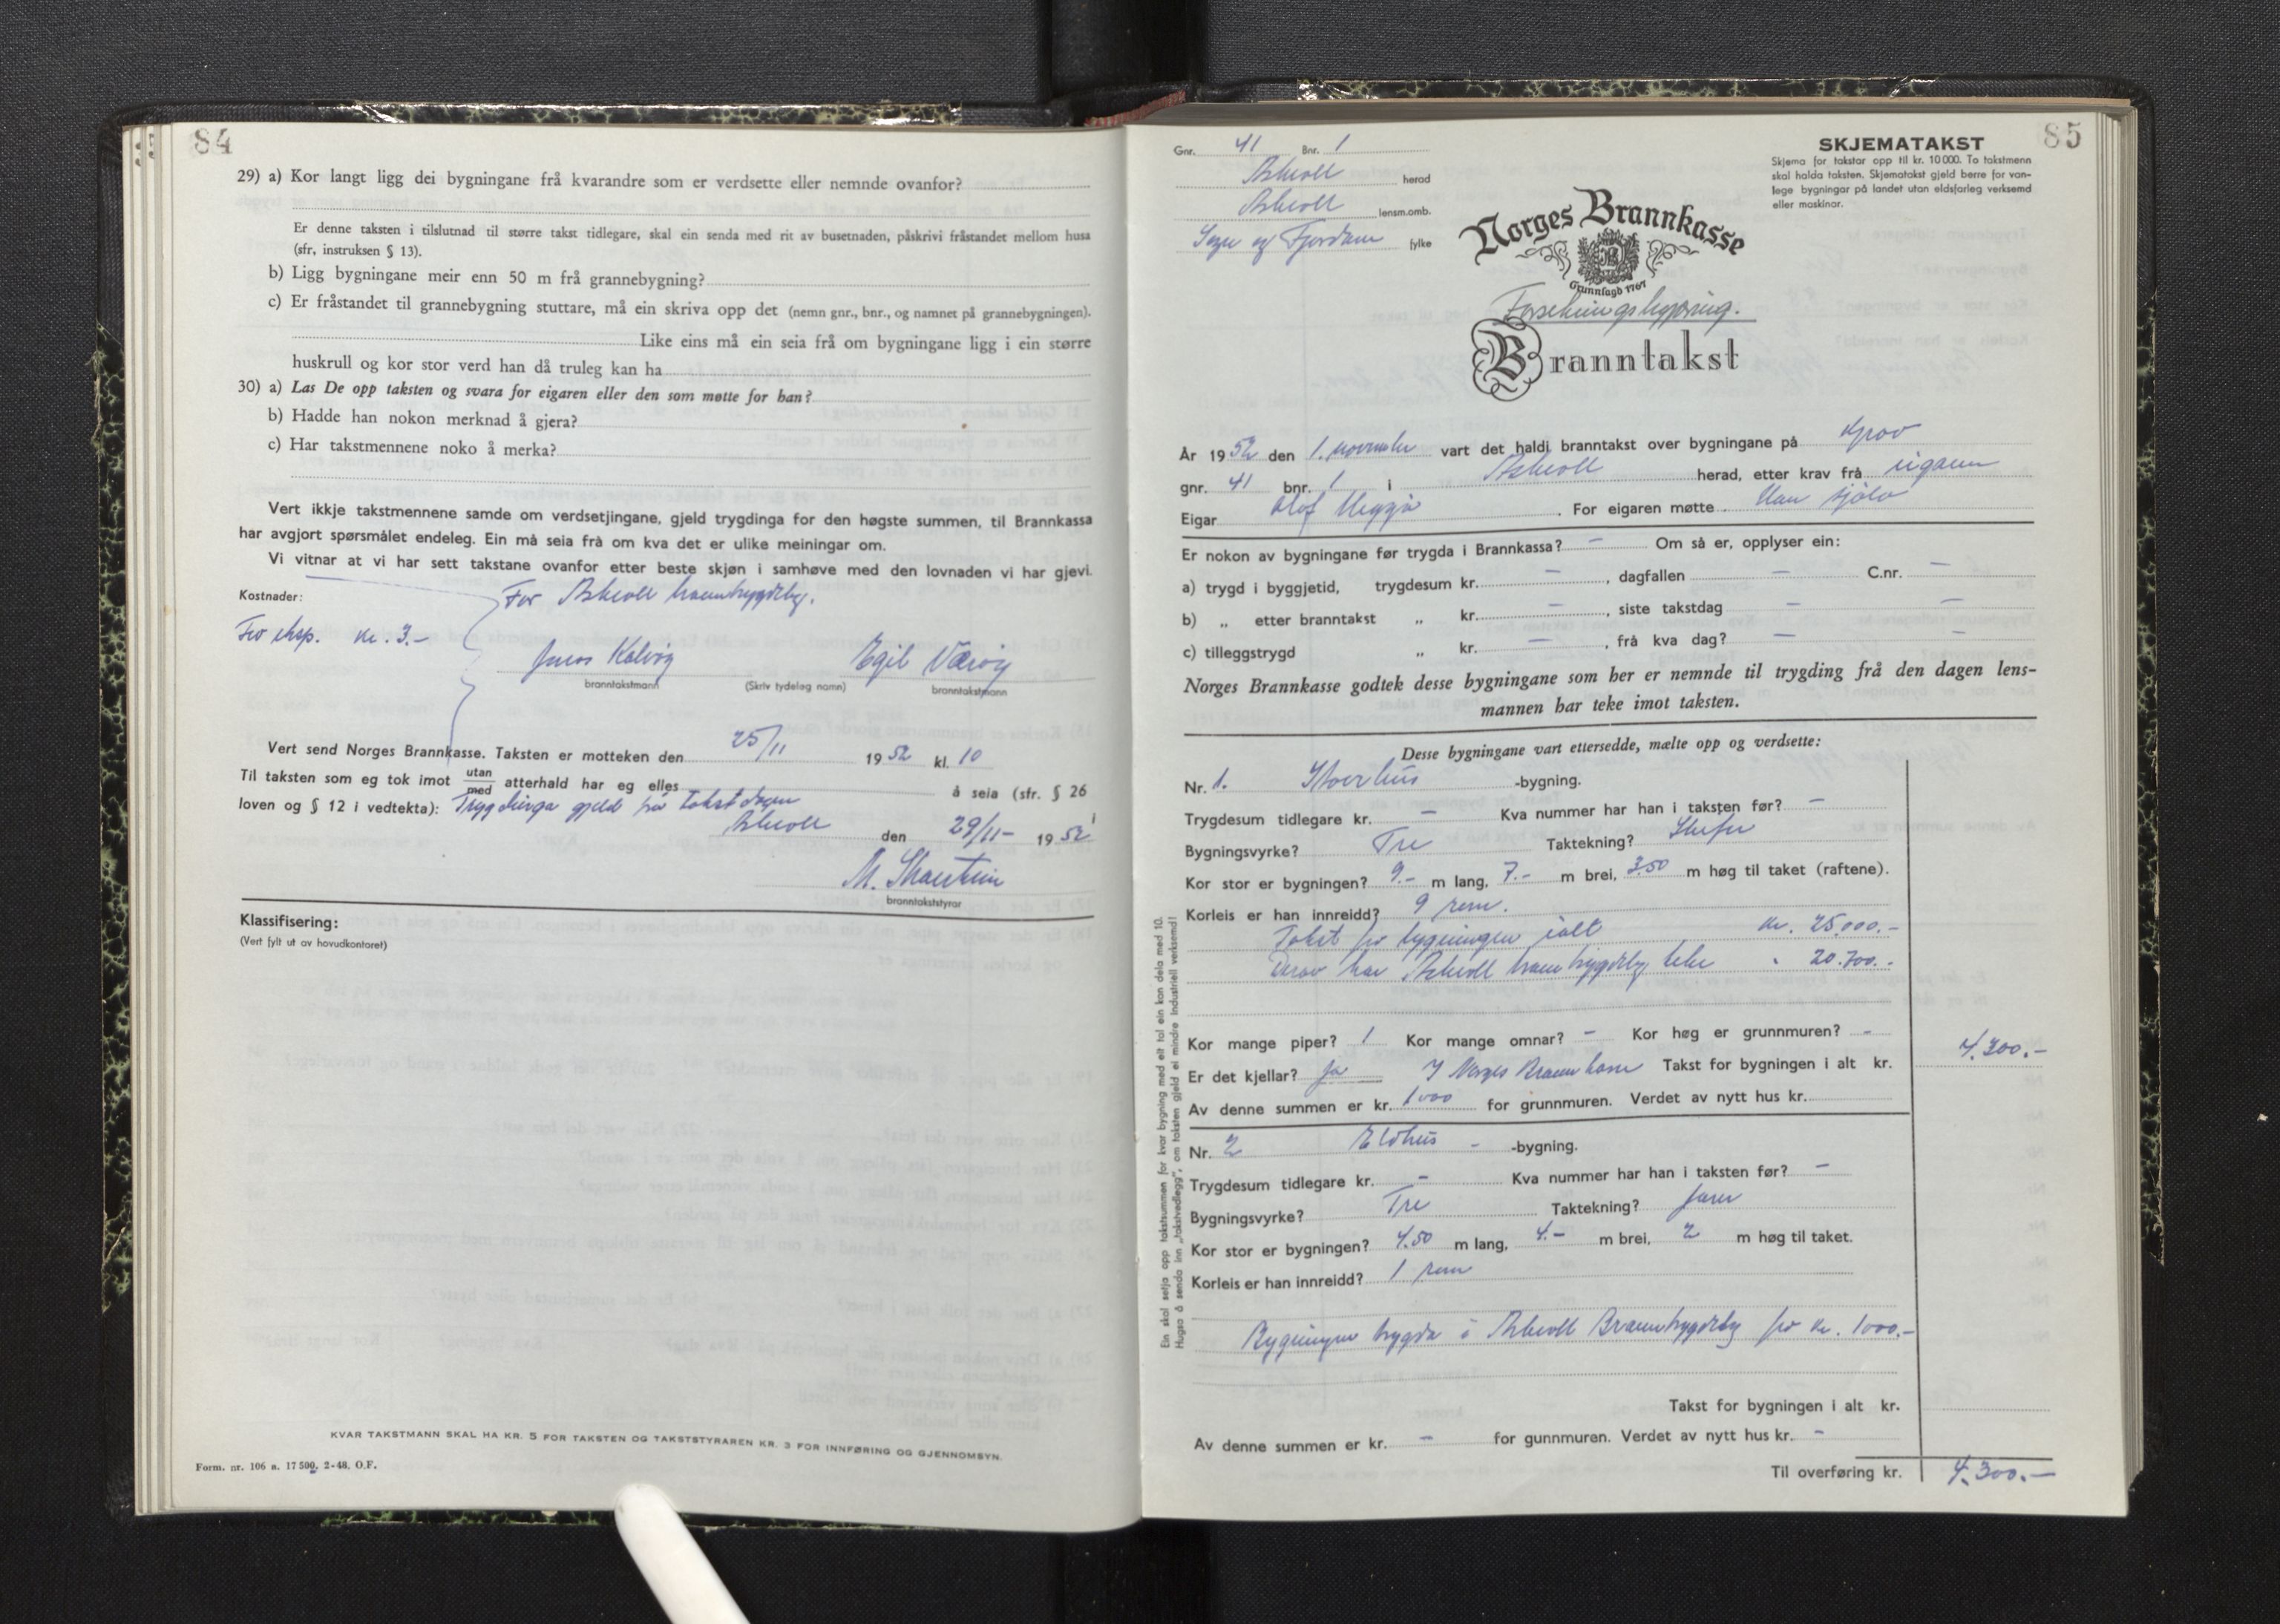 84
29) a) Kor langt ligg dei bygningane frå kvarandre som er verdsette eller nemnde ovanfor?
Er denne taksten i tilslutnad til større takst tidlegare, skal ein senda med rit av busetnaden, påskrivi fråstandet mellom husa
(sfr, instruksen § 13).
b) Ligg bygningane meir enn 50 m frå grannebygning?
c) Er fråstandet til grannebygning stuttare, må ein skriva opp det (nemn gnr., bnr., og namnet på grannebygningen).
Like eins må ein seia frå om bygningane ligg i ein større
huskrull og kor stor verd han då truleg kan ha
30) a) Las De opp taksten og svara for eigaren eller den som møtte for han?
b) Hadde han nokon merknad å gjera?
c) Har takstmennene noko å merka?
Vert ikkje takstmennene samde om verdsetjingane, gjeld trygdinga for den høgste summen, til Brannkassa
har avgjort spørsmålet endeleg. Ein må seia frå om kva det er ulike meiningar om.
Vi vitnar at vi har sett takstane ovanfor etter beste skjøn i samhøve med den lovnaden vi har gjevi.
Kostnader:
For Askvoll branntrygdelag.
For eksp. kr. 3.-
Jens Kalvøy Egil Værøy
branntakstmann (Skriv tydeleg namn) branntakstmann
Vert send Norges Brannkasse. Taksten er motteken den 25/11 1952 kl. 10
Til taksten som eg tok imot utan/med atterhald har eg elles å seia (sfr. § 26 i
loven og § 12 i vedtekta): Trygdinga gjeld frå takstdagen
Askvoll den 29/11- 1952
branntakststyrar
Klassifisering:
(Vert fylt ut av hovudkontoret)
KVAR TAKSTMANN SKAL HA KR. 5 FOR TAKSTEN OG TAKSTSTYRAREN KR. 3 FOR INNFØRING OG GJENNOMSYN.
Form. nr. 106 a. 17 500. 2-48. O.F.
85
Gnr. 41 Bnr. 1
Askvoll herad
Askvoll lensm.omb.
Sogn og Fjordane fylke
SKJEMATAKST
Skjema for takstar opp til kr. 10 000. To takstmenn
skal halda taksten. Skjematakst gjeld berre for van-
lege bygningar på landet utan eldsfarleg verksemd
eller maskinar.
Norges Brannkasse
Grunnlagd 1767
Forsekringsbygning.
Branntakst
År 1952 den 1. november vart det haldi branntakst over bygningane på Grov
gnr. 41 bnr. 1 i Askvoll herad, etter krav frå eigaren
Eigar Olof Heggøy. For eigaren møtte Han sjølv
Er nokon av bygningane før trygda i Brannkassa? – Om så er, opplyser ein:
a) trygd i byggjetid, trygdesum kr. –, dagfallen – C.nr. –
b) „ etter branntakst „ kr. –, siste takstdag – –
c) tilleggstrygd „ kr. –, frå kva dag? – –
Norges Brannkasse godtek desse bygningane som her er nemnde til trygding frå den dagen lens-
mannen har teke imot taksten.
Desse bygningane vart ettersedde, mælte opp og verdsette:
Nr. 1. Våerhus -bygning.
Trygdesum tidlegare kr. – Kva nummer har han i taksten før? –
Bygningsvyrke? Tre Taktekning? Skifer
Kor stor er bygningen? 9.- m lang, 7.- m brei, 3.50 m høg til taket (raftene).
Korleis er han innreidd? 9 rom.
Takst for bygningen ialt kr. 25.000.-
Derav har Askvoll branntrygdelag teke " 20.700.-
Kor mange piper? 1 Kor mange omnar? – Kor høg er grunnmuren? -
Er det kjellar? Ja I Norges Brannkasse Takst for bygningen i alt kr. 4.300.-
Av denne summen er kr. 1000 for grunnmuren. Verdet av nytt hus kr.
Nr. 2 Eldhus - -bygning.
Trygdesum tidlegare kr. - Kva nummer har han i taksten før? –
Bygningsvyrke? Tre Taktekning?
Kor stor er bygningen? 4.50 m lang, 4.- m brei, 2 m høg til taket.
Korleis er han innreidd? 1 rom
Bygningen trygda i Askvoll Branntrygdelag for kr. 1000.-
Takst for bygningen i alt kr.
Av denne summen er kr. – for gunnmuren. Verdet av nytt hus kr. –
Til overføring kr. 4.300.-
Ein skal setja opp takstsummen for kvar bygning med eit tal ein kan dela med 10.
Hugsa å senda inn „takstvedlegg", om taksten gjeld ei mindre industriell verksemd!